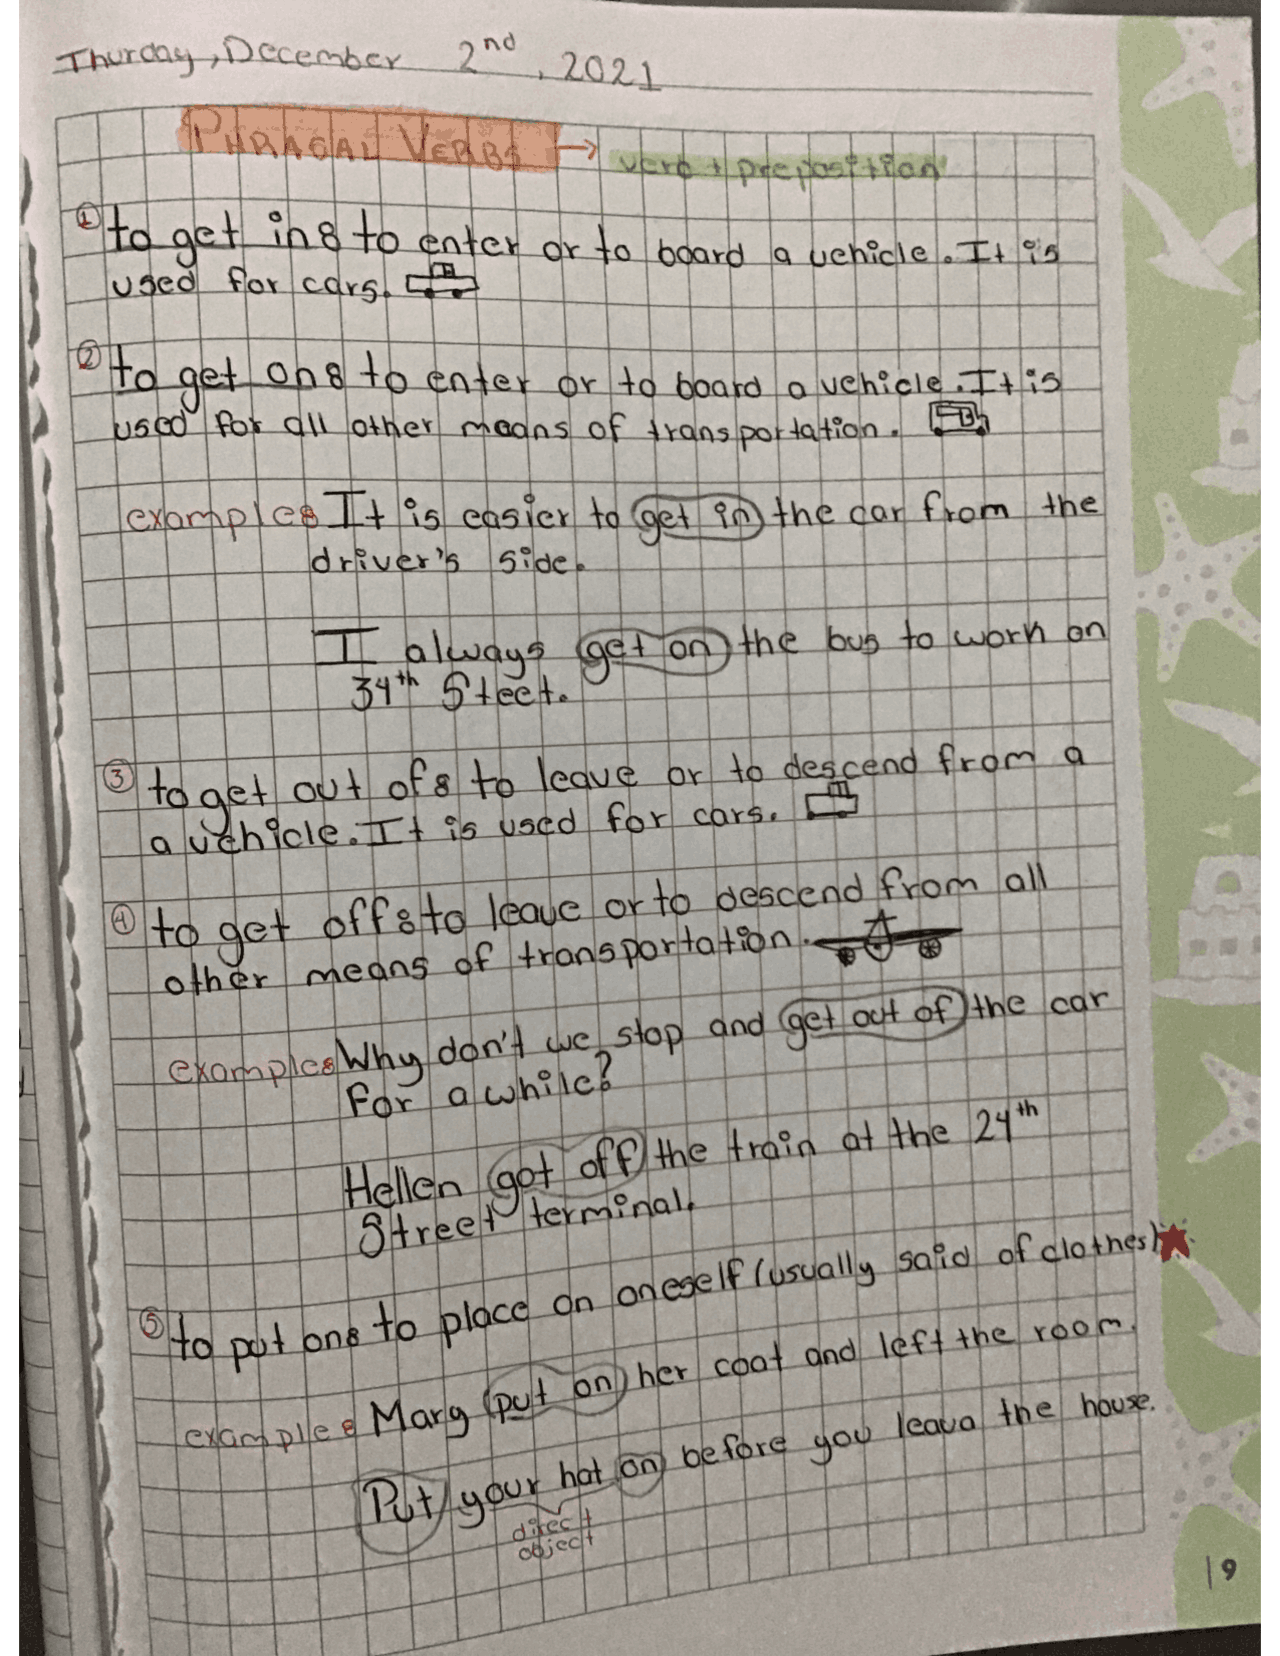 Thurday, December 2nd, 2021
PHRASAL VERBS → verb + preposition
① to get in: to enter or to board a vehicle. It is
used for cars.
② to get on: to enter or to board a vehicle. It is
used for all other means of transportation.
example: It is easier to get in the car from the
driver's side.
I always get on the bus to work on
34th Steet.
③ to get out of: to leave or to descend from a
a vehicle. It is used for cars.
④ to get off: to leave or to descend from all
other means of transportation.
example: Why don't we stop and get out of the car
for a while?
Hellen got off the train at the 24th
Street terminal.
⑤ to put on: to place on oneself (usually said of clothes)
example: Mary put on her coat and left the room.
Put your hat on before you leave the house.
direct
object
19